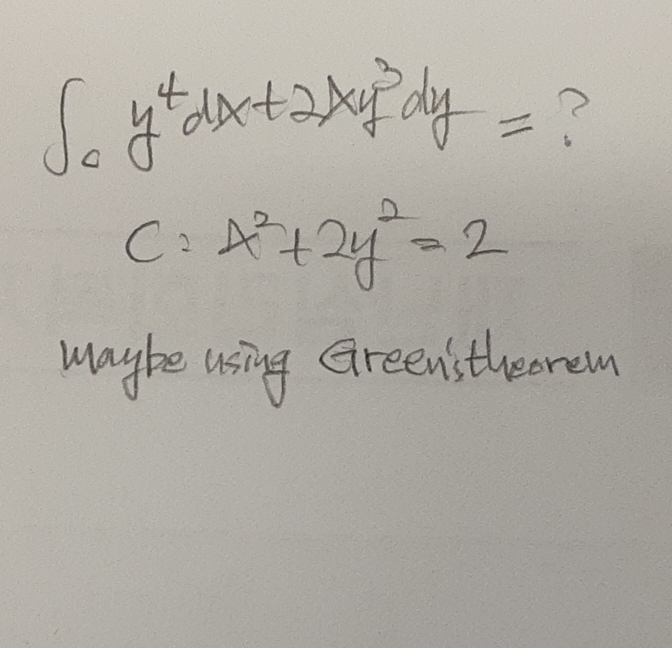 ∫_c y⁴dx+2xy³dy = ?
C: x²+2y² = 2
maybe using Green's theorem